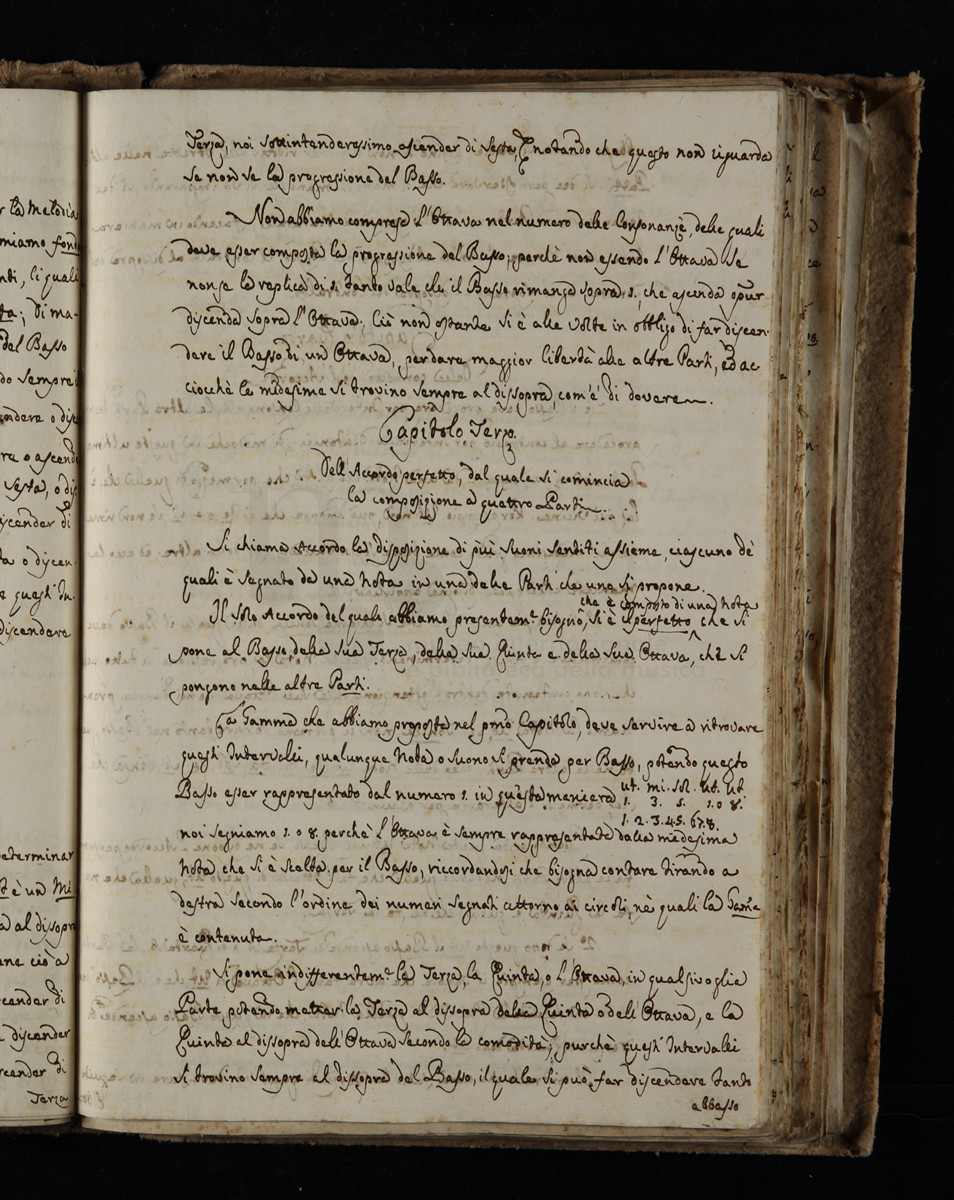 r la Melodia
niamo fond
nti, li quali
ta; Di ma-
del Basso
do sempre
endere o dis
re o ascend
Sesta, o dis
scender di
ta o discen-
e questi In-
discendere
eterminar
è un Mi
a al dissopr
ne ciò a
cender di
discender
cender di
Terza
Terza, noi sottintenderessimo ascender di Sesta, notando che questo non riguarda
se non se la progressione del Basso.
Non abbiamo compresa l'Ottava nel numero delle Consonanze, delle quali
deve esser composta la progressione del Basso; perchè non essendo l'Ottava se
non se la replica di 1. tanto vale che il Basso rimanga sopra 1., che ascenda opur
discenda sopra l'Ottava; Ciò non ostante si è alle volte in obbligo di far discen-
dere il Basso di un Ottava, per dare maggior libertà alle altre Parti, ed ac
ciocchè le medesime si trovino sempre al dissopra, com'è di dovere.
Capitolo Terzo.
Dell'Accordo perfetto, dal quale si comincia
la composizione a quattro Parti.
Si chiama Accordo la disposizione di più Suoni sentiti assieme, ciascuno de'
quali è segnato da una Nota in una delle Parti che uno si propone.
che è composto di una Nota
Il solo Accordo del quale abbiamo presentem.e bisogno, si è il perfetto che si
pone al Basso, della sua Terza, della sua Quinta e della sua Ottava, che si
pongono nelle altre Parti.
La Gamma che abbiamo proposta nel pmo Capitolo, deve servire a ritrovare
questi Intervalli, qualunque Nota o Suono si prenda per Basso, potendo questo
Basso esser rappresentato dal numero 1. in questa maniera ut. mi. sol. ut. ut
1. 3. 5. 1. o 8.
1. 2. 3. 4. 5. 6. 7. 8.
noi segniamo 1. o 8. perchè l'Ottava è sempre rappresentata dalla medesima
Nota che si è scelta per il Basso, riccordandosi che bisogna contare tirando a
destra secondo l'ordine dei numeri segnati attorno ai circoli, nè quali la Gama
è contenuta.
Si pone indifferentem.e la Terza, la Quinta, o l'Ottava, in qualsivoglia
Parte potendo metter la Terza al dissopra della Quinta o dell'Ottava, e la
Quinta al dissopra dell'Ottava secondo la comodità; purchè questi Intervalli
si trovino sempre al dissopra del Basso, il quale si può far discendere tanto
abbasso